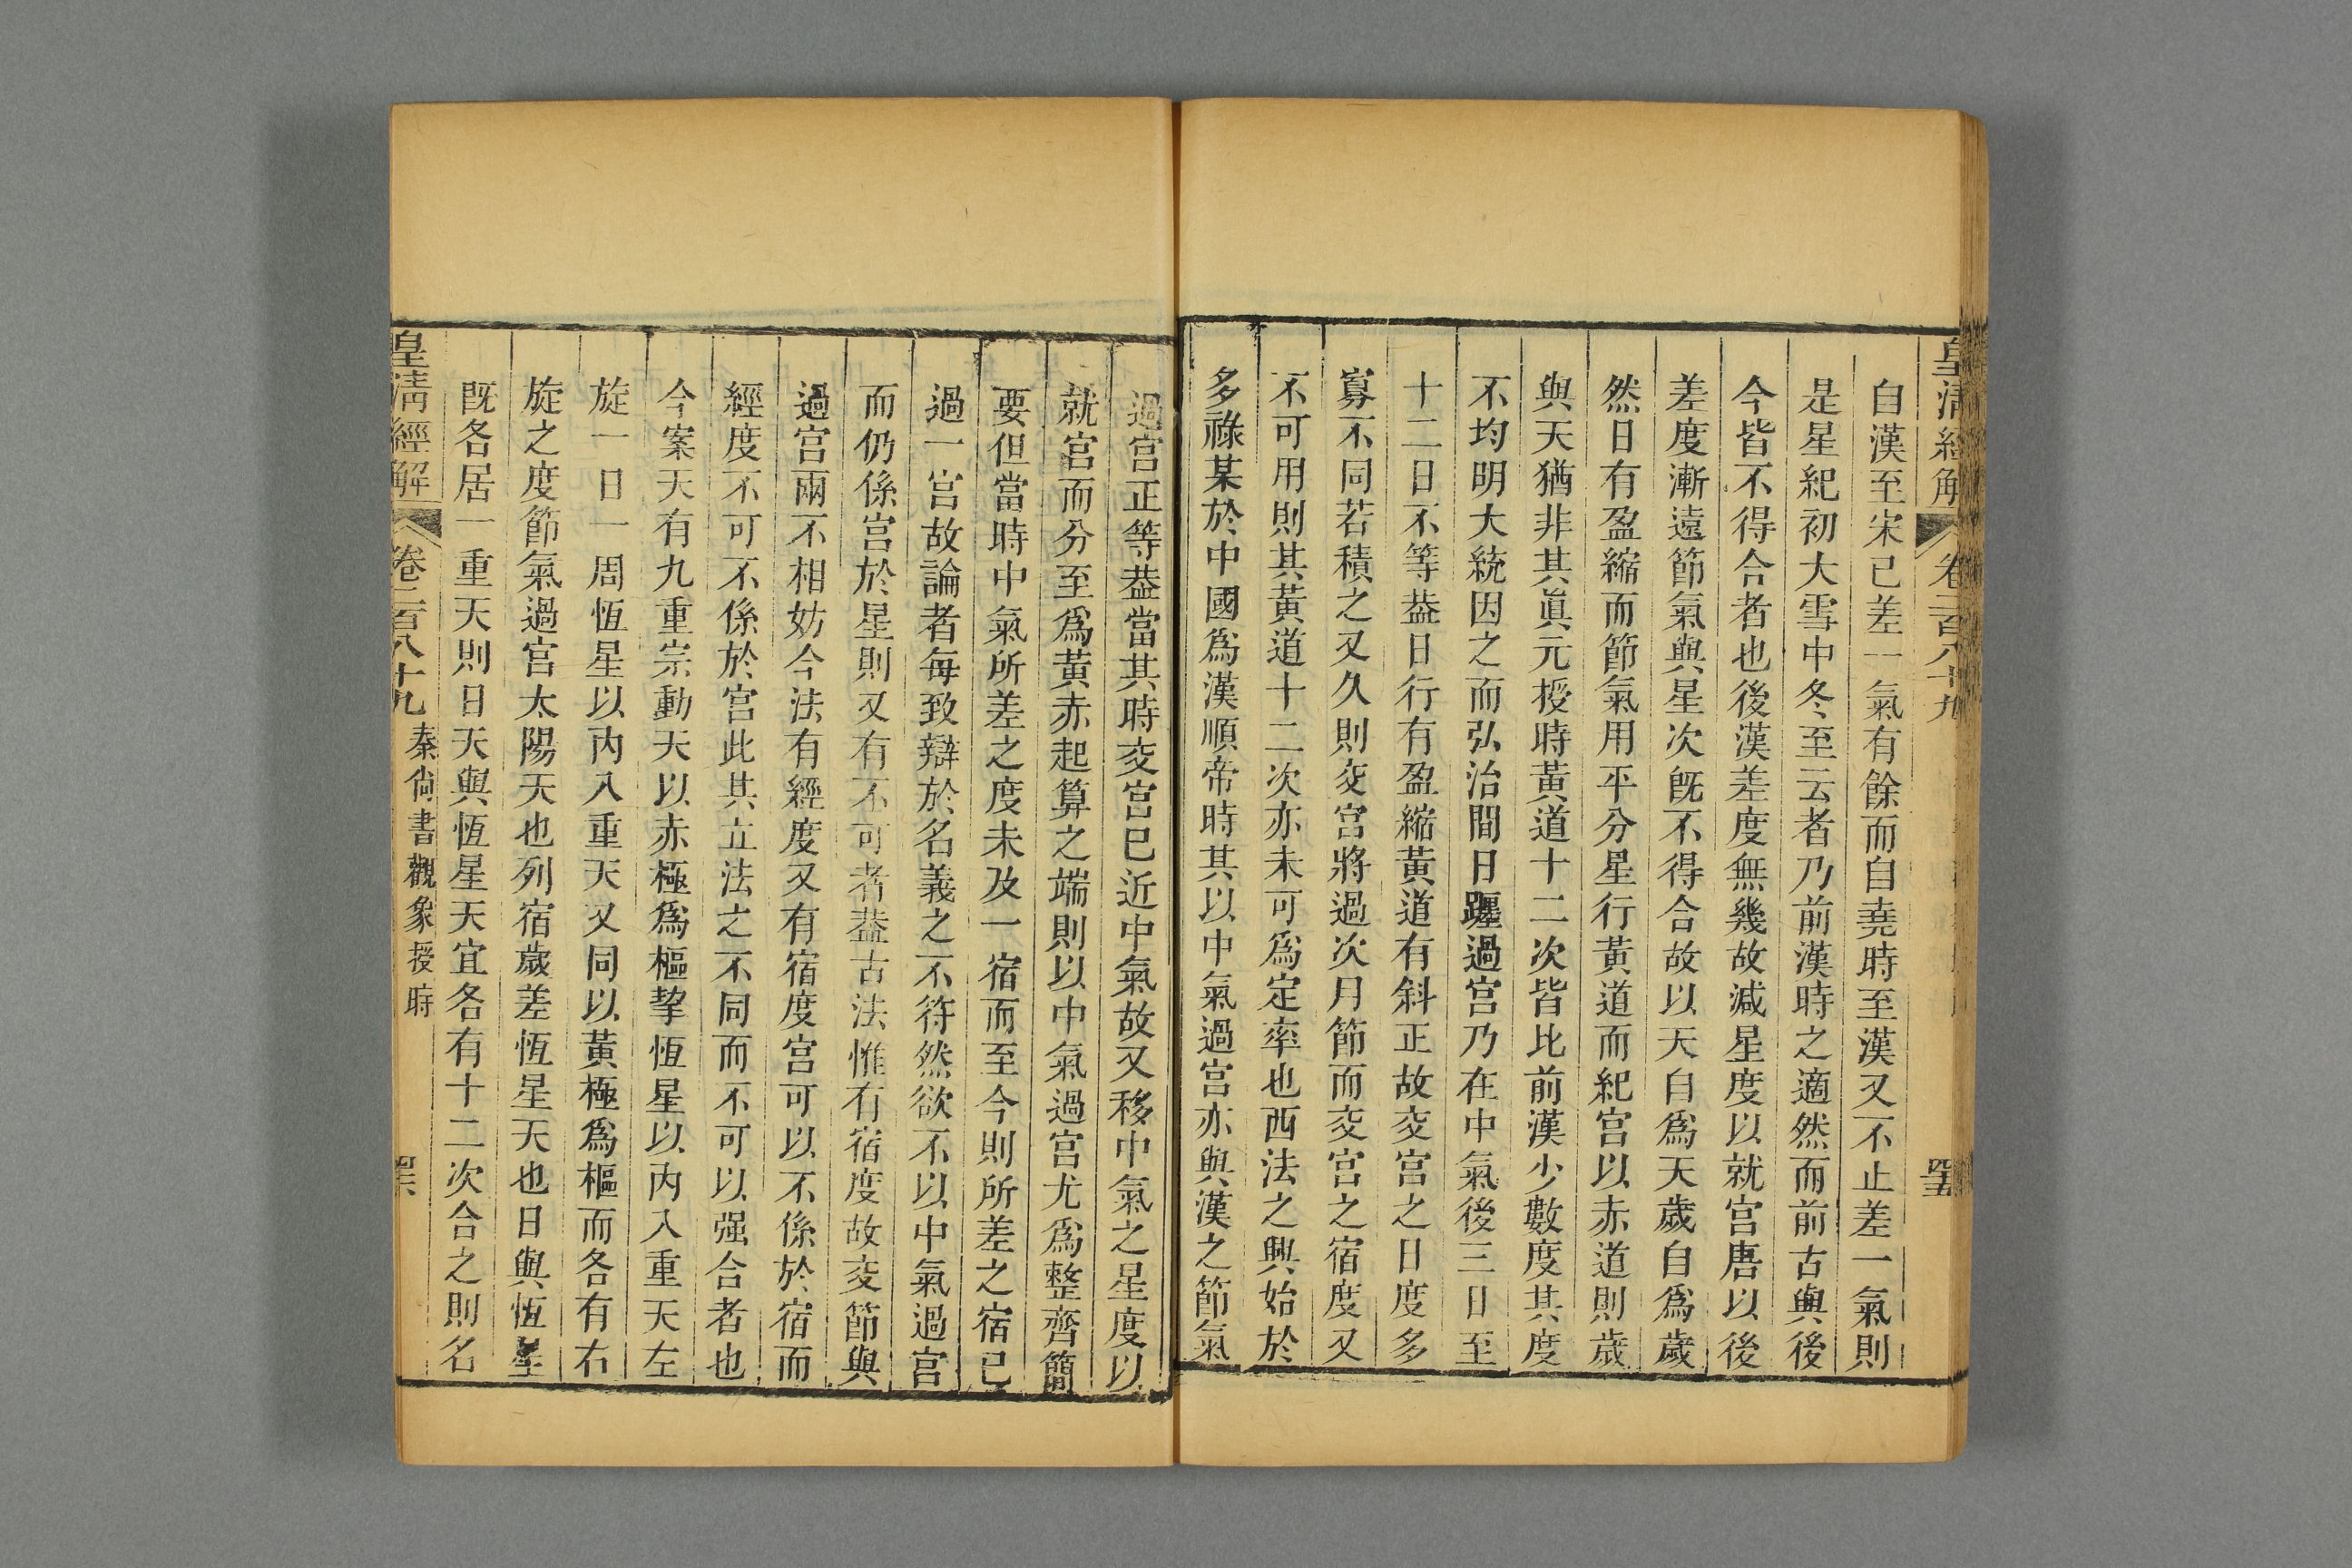 皇清經解
卷二百八十九
自漢至宋已差一氣有餘而自堯時至漢又不止差一氣則
是星紀初大雪中冬至云者乃前漢時之適然而前古與後
今皆不得合者也後漢差度無幾故減星度以就宮唐以後
差度漸遠節氣與星次旣不得合故以天自爲天歲自爲歲
然日有盈縮而節氣用平分星行黃道而紀宮以赤道則歲
與天猶非其眞元授時黃道十二次皆比前漢少數度其度
不均明大統因之而弘治間日躔過宮乃在中氣後三日至
十二日不等葢日行有盈縮黃道有斜正故交宮之日度多
寡不同若積之又久則交宮將過次月節而交宮之宿度又
不可用則其黃道十二次亦未可爲定率也西法之興始於
多祿某於中國爲漢順帝時其以中氣過宮亦與漢之節氣
過宮正等葢當其時交宮巳近中氣故又移中氣之星度以
就宮而分至爲黃赤起算之端則以中氣過宮尤爲整齊簡
要但當時中氣所差之度未及一宿而至今則所差之宿已
過一宮故論者每致辯於名義之不符然欲不以中氣過宮
而仍係宮於星則又有不可者葢古法惟有宿度故交節與
過宮兩不相妨今法有經度又有宿度宮可以不係於宿而
經度不可不係於宮此其立法之不同而不可以强合者也
今案天有九重宗動天以赤極爲樞挈恆星以內入重天左
旋一日一周恆星以內入重天又同以黃極爲樞而各有右
旋之度節氣過宮太陽天也列宿歲差恆星天也日與恆星
旣各居一重天則日天與恆星天宜各有十二次合之則名
皇清經解
卷二百八十九
秦尙書觀象授時